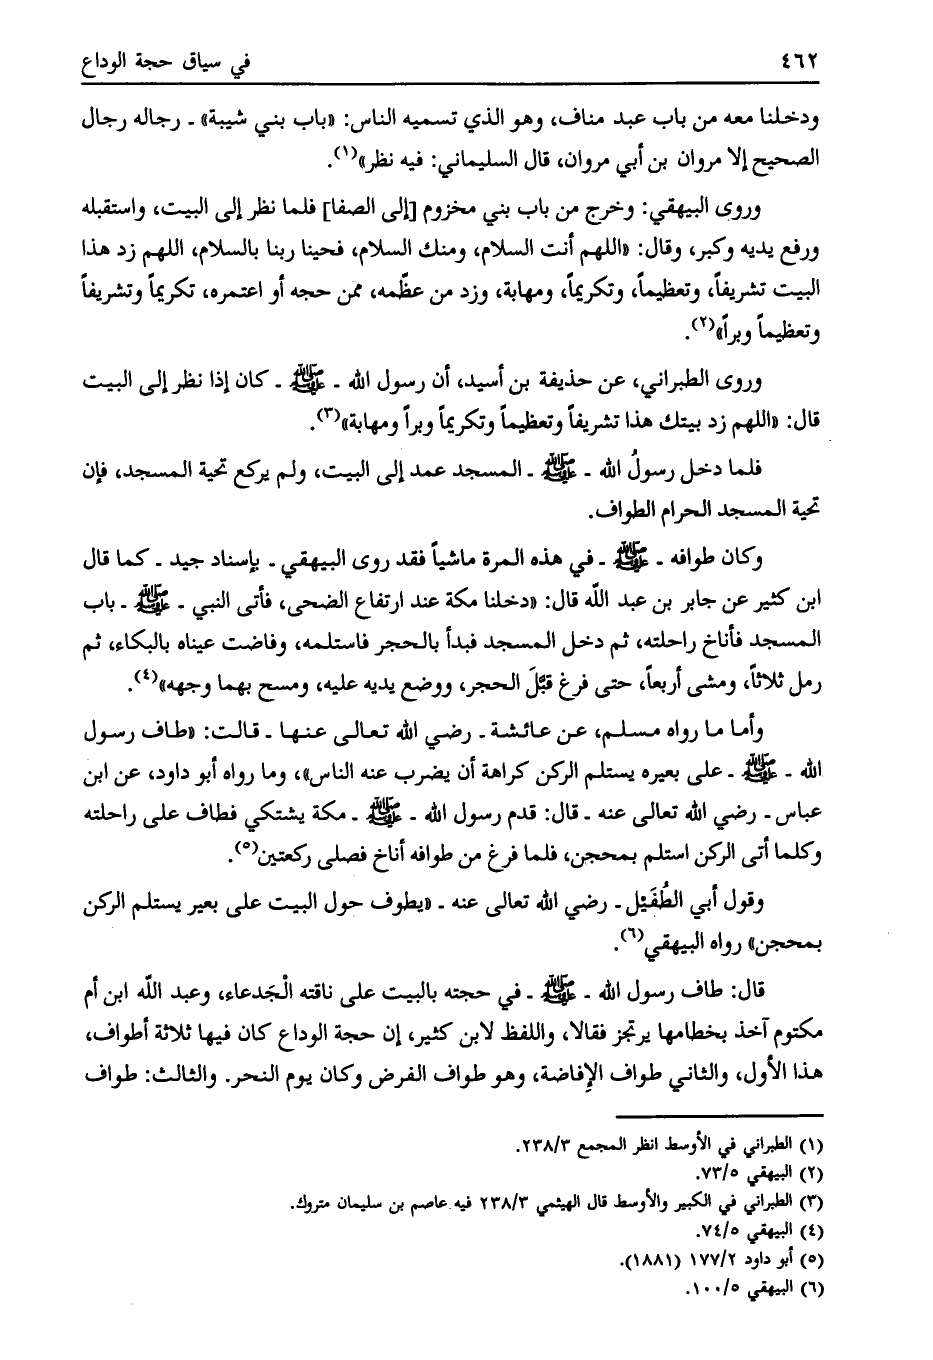 ٤٦٢
في سياق حجة الوداع
ودخلنا معه من باب عبد مناف، وهو الذي تسميه الناس: «باب بني شيبة» ـ رجاله رجال
الصحيح إلا مروان بن أبي مروان، قال السليماني: فيه نظر»(١).
وروى البيهقي: وخرج من باب بني مخزوم [إلى الصفا] فلما نظر إلى البيت، واستقبله
ورفع يديه وكبر، وقال: «اللهم أنت السلام، ومنك السلام، فحينا ربنا بالسلام، اللهم زد هذا
البيت تشريفاً، وتعظيماً، وتكريماً، ومهابة، وزد من عظّمه، ممن حجه أو اعتمره، تكريماً وتشريفاً
وتعظيماً وبراً»(٢).
وروى الطبراني، عن حذيفة بن أسيد، أن رسول الله ـ ﷺ ـ كان إذا نظر إلى البيت
قال: «اللهم زد بيتك هذا تشريفاً وتعظيماً وتكريماً وبراً ومهابة»(٣).
فلما دخل رسولُ الله ـ ﷺ ـ المسجد عمد إلى البيت، ولم يركع تحية المسجد، فإن
تحية المسجد الحرام الطواف.
وكان طوافه ـ ﷺ ـ في هذه المرة ماشياً فقد روى البيهقي ـ بإسناد جيد ـ كما قال
ابن كثير عن جابر بن عبد اللّه قال: «دخلنا مكة عند ارتفاع الضحى، فأتى النبي ـ ﷺ ـ باب
المسجد فأناخ راحلته، ثم دخل المسجد فبدأ بالحجر فاستلمه، وفاضت عيناه بالبكاء، ثم
رمل ثلاثاً، ومشى أربعاً، حتى فرغ قبَّلَ الحجر، ووضع يديه عليه، ومسح بهما وجهه»(٤).
وأما ما رواه مسلم، عن عائشة ـ رضي الله تعالى عنها ـ قالت: «طاف رسول
الله ـ ﷺ ـ على بعيره يستلم الركن كراهة أن يضرب عنه الناس»، وما رواه أبو داود، عن ابن
عباس ـ رضي الله تعالى عنه ـ قال: قدم رسول الله ـ ﷺ ـ مكة يشتكي فطاف على راحلته
وكلما أتى الركن استلم بمحجن، فلما فرغ من طوافه أناخ فصلى ركعتين(٥).
وقول أبي الطُّفَيْل ـ رضي الله تعالى عنه ـ «يطوف حول البيت على بعير يستلم الركن
بمحجن» رواه البيهقي(٦).
قال: طاف رسول الله ـ ﷺ ـ في حجته بالبيت على ناقته الْجَدعاء، وعبد اللّه ابن أم
مكتوم آخذ بخطامها يرتجز فقالا، واللفظ لابن كثير، إن حجة الوداع كان فيها ثلاثة أطواف،
هذا الأول، والثاني طواف الإفاضة، وهو طواف الفرض وكان يوم النحر. والثالث: طواف
(١) الطبراني في الأوسط انظر المجمع ٢٣٨/٣.
(٢) البيهقي ٧٣/٥.
(٣) الطبراني في الكبير والأوسط قال الهيثمي ٢٣٨/٣ فيه عاصم بن سليمان متروك.
(٤) البيهقي ٧٤/٥.
(٥) أبو داود ١٧٧/٢ (١٨٨١).
(٦) البيهقي ١٠٠/٥.